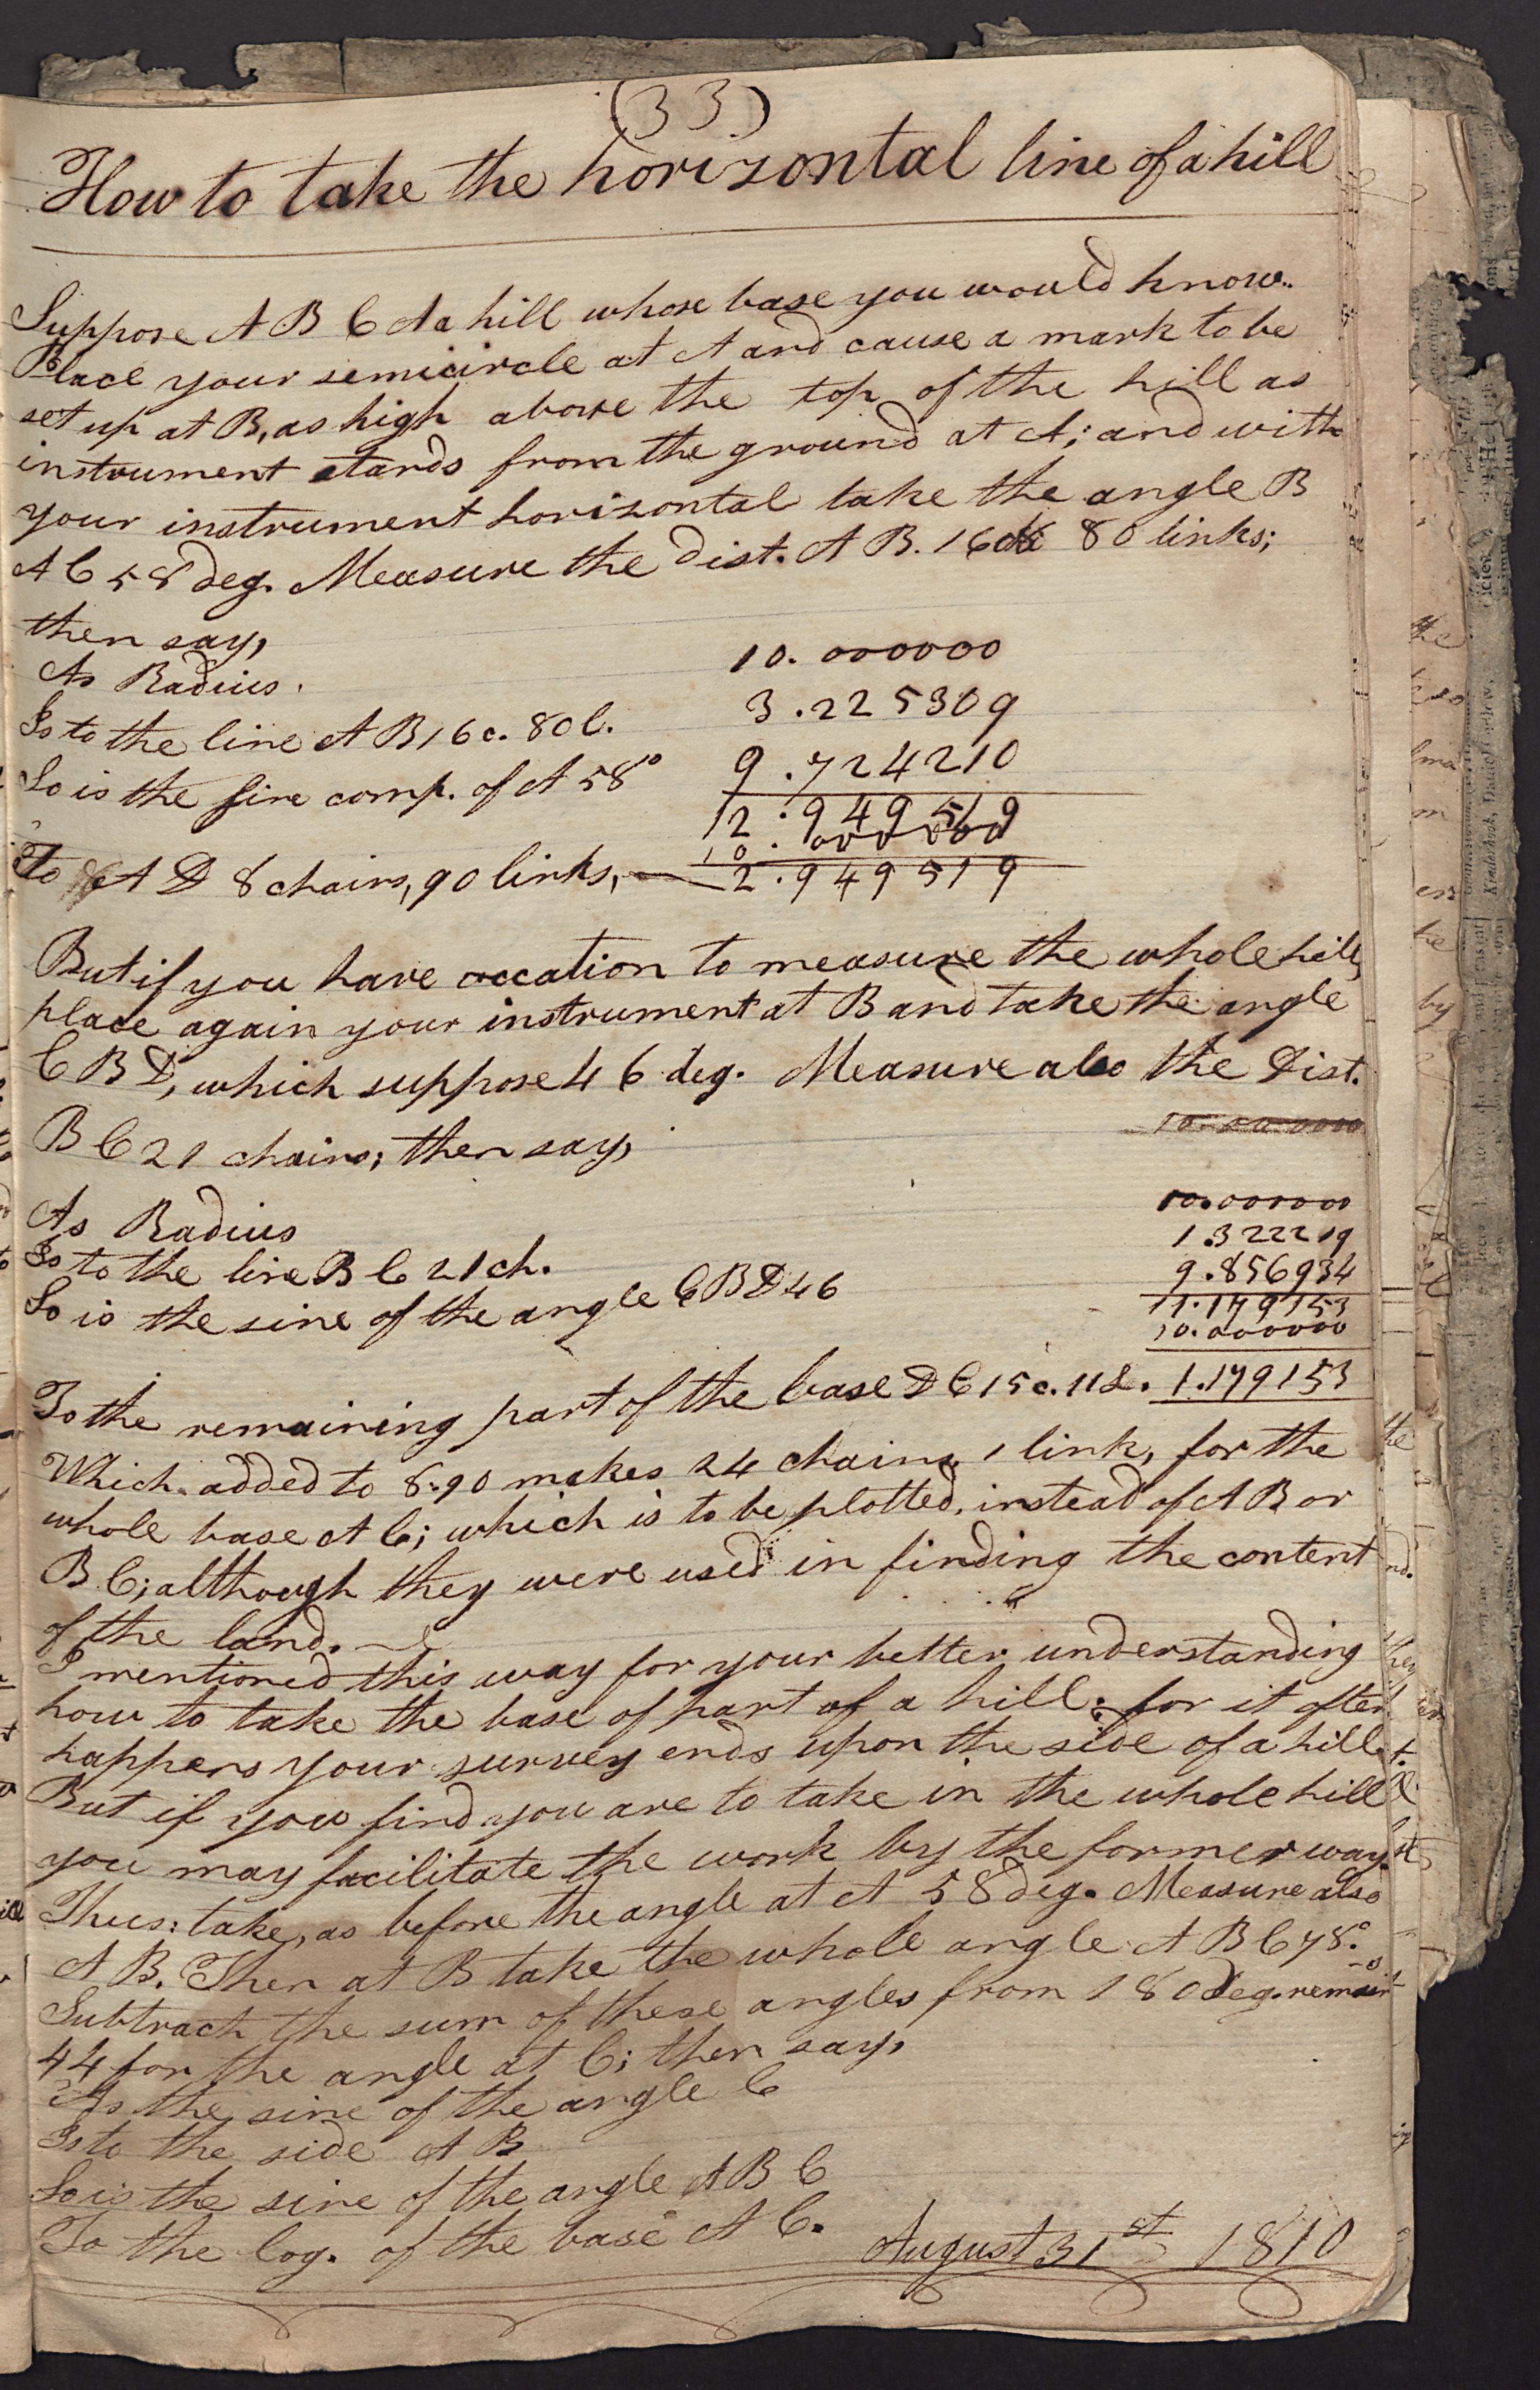 (33)
How to take the horizontal line of a hill
Suppose A B C A a hill whose base you would know.
Place your semicircle at A and cause a mark to be
set up at B, as high above the top of the hill as
instrument stands from the ground at A; and with
your instrument horizontal take the angle B
A C 58 deg. Measure the Dist. A B. 16 ch 80 links;
then say,
As Radius. 10.000000
Is to the line A B 16 c. 80 l. 3.225309
So is the sine comp. of A 58° 9.724210
12.949519
10.000000
To A D 8 chains, 90 links, 2.949519
But if you have occation to measure the whole hill,
place again your instrument at B and take the angle
C B D, which suppose 46 deg. Measure also the Dist.
B C 21 chains; then say, 10.000000
As Radius 10.000000
Is to the line B C 21 ch. 1.322219
So is the sine of the angle C B D 46 9.856934
11.179153
10.000000
To the remaining part of the base D C 15 c. 11 L. 1.179153
Which added to 8.90 makes 24 chains 1 link, for the
whole base A C; which is to be plotted, instead of A B or
B C; although they were used in finding the content
of the land.
I mentioned this way for your better understanding
how to take the base of part of a hill; for it often
happens your survey ends upon the side of a hill
But if you find you are to take in the whole hill
you may facilitate the work by the former way.
Thus: take, as before the angle at A 58 deg. Measure also
A B. Then at B take the whole angle A B C 78.°
Subtract the sum of these angles from 180 deg. remain
44 for the angle at C; then say,
As the sine of the angle C
Is to the side A B
So is the sine of the angle A B C
To the log. of the base A C.
August 31st 1810